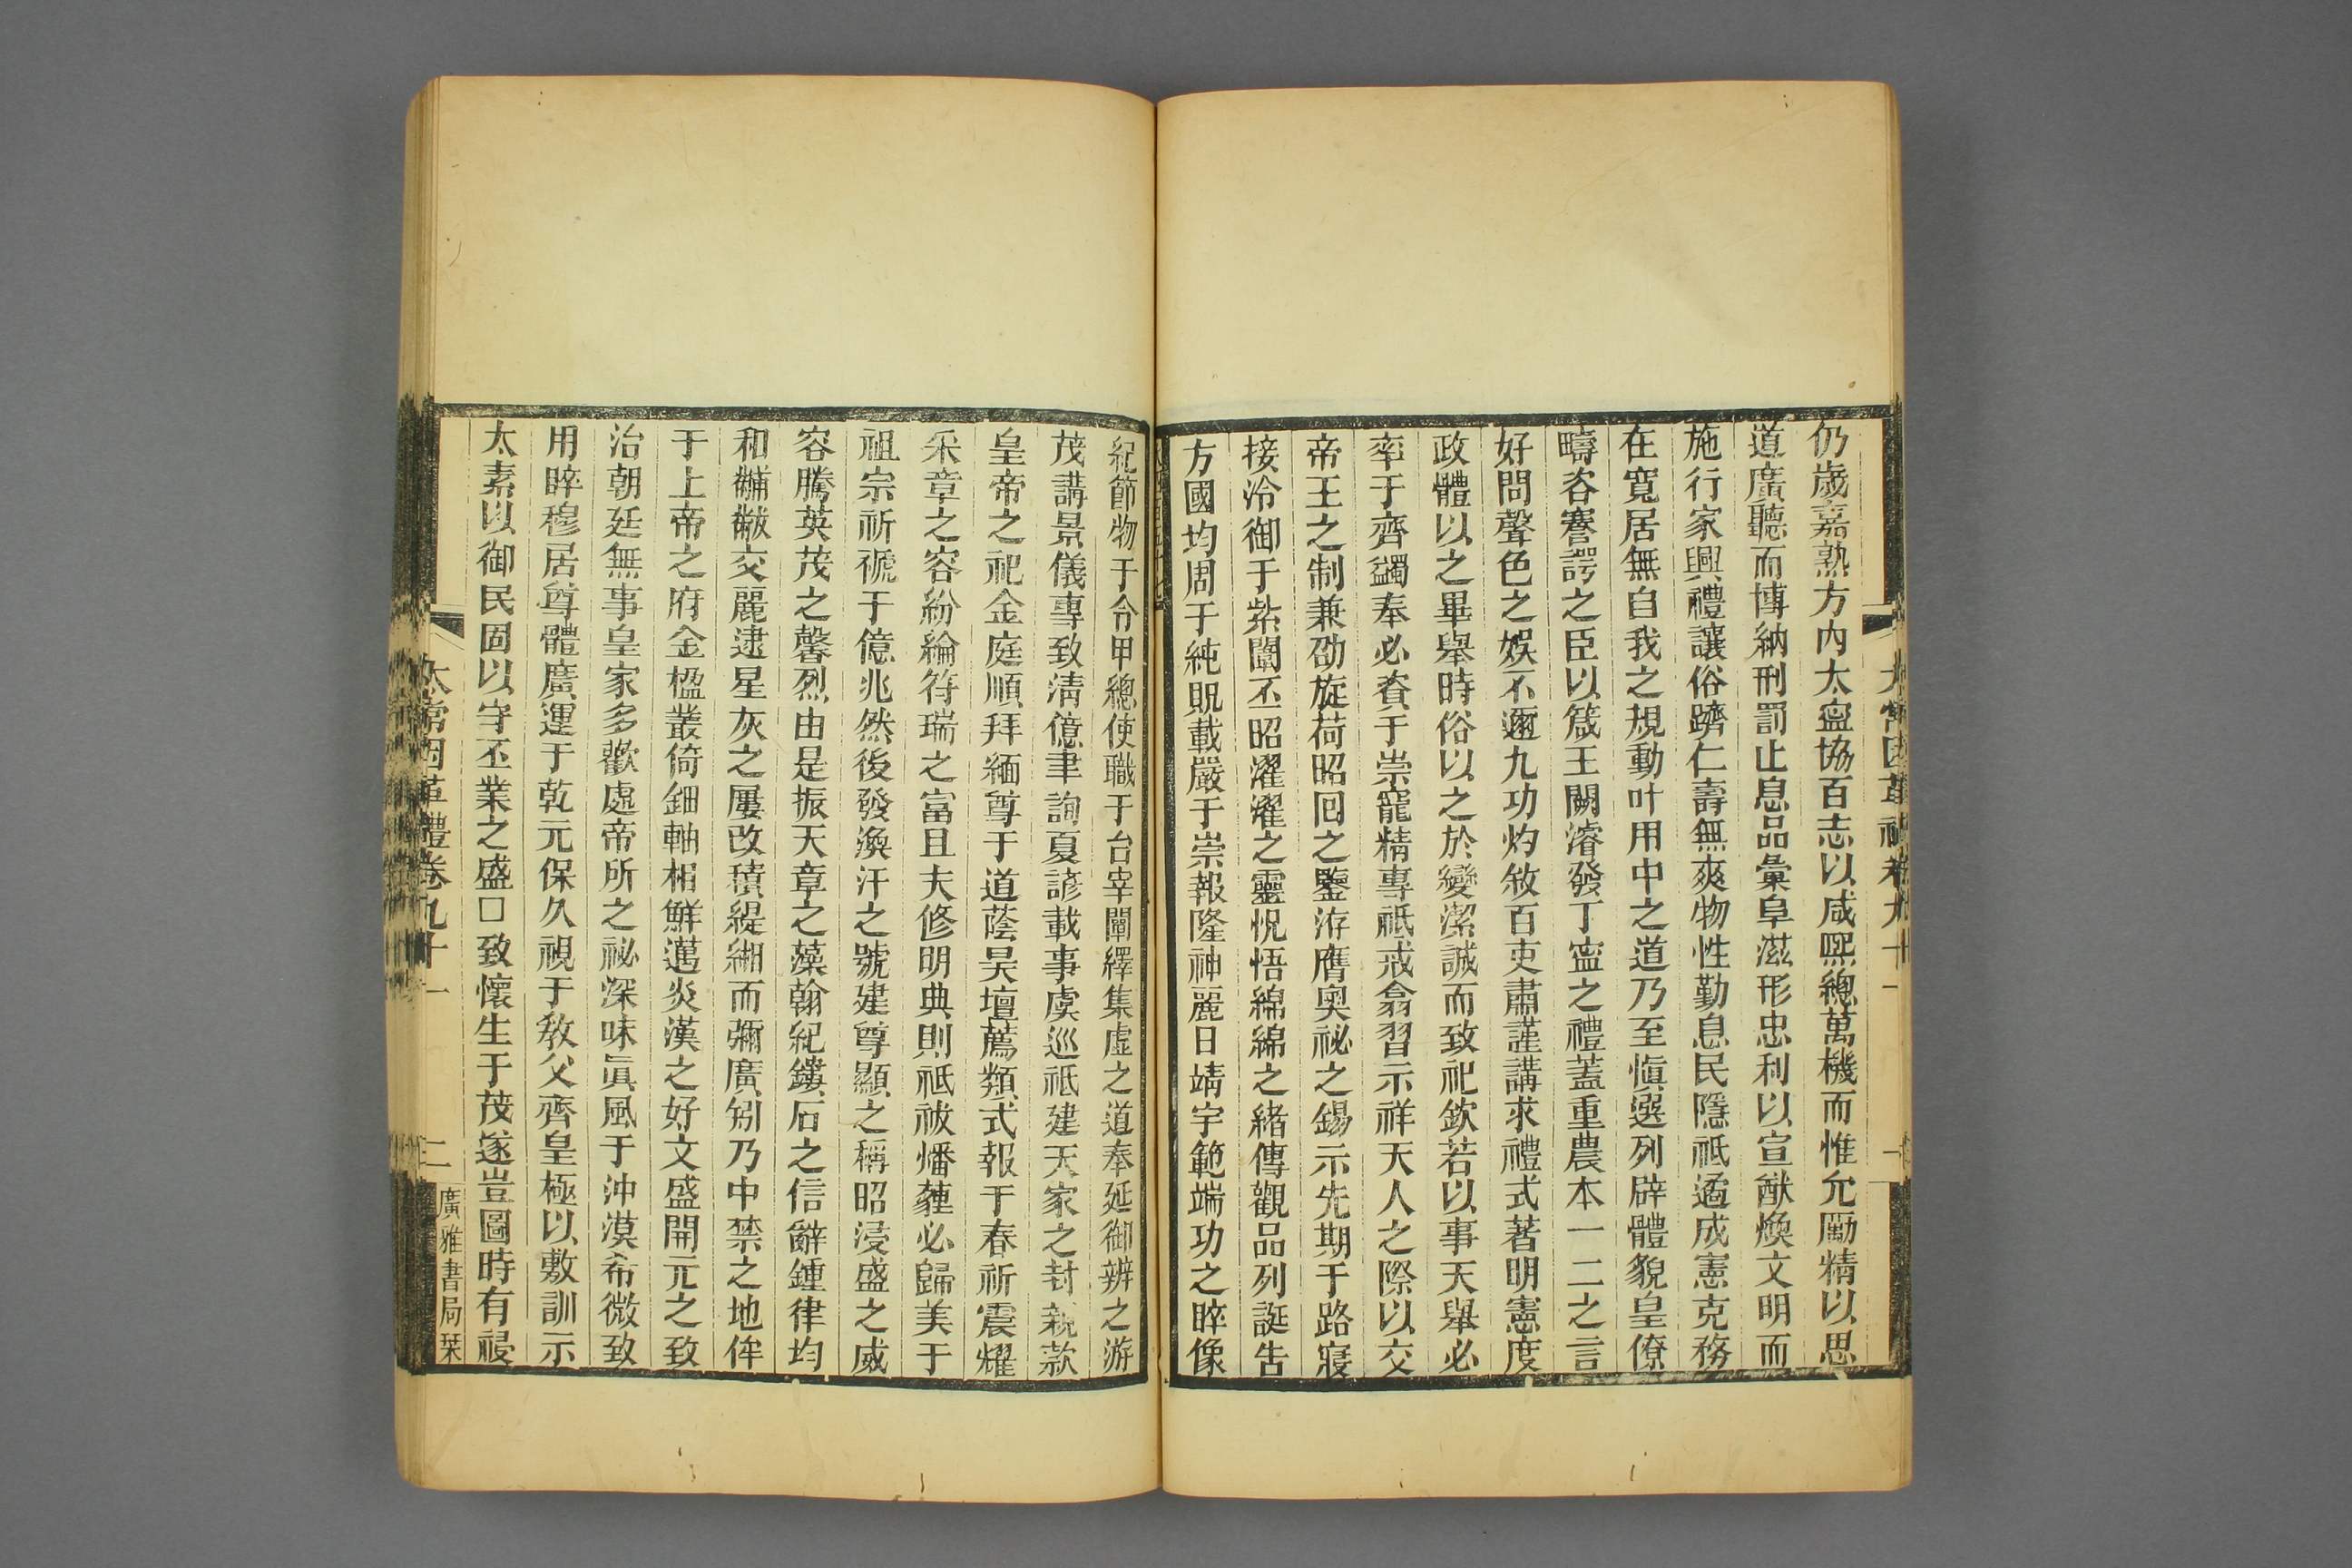 太常因革禮卷九十一
一
仍歲嘉熟方內太寍協百志以咸熙總萬機而惟允勵精以思
道廣聽而博納刑罰止息品彙阜滋形忠利以宣猷煥文明而
施行家興禮讓俗躋仁壽無爽物性勤息民隱祗遹成憲克務
在寬居無自我之規動叶用中之道乃至愼選列辟體貌皇僚
疇咨謇諤之臣以箴王闕濬發丁寍之禮蓋重農本一二之言
好問聲色之娛不邇九功灼敘百吏肅謹講求禮式著明憲度
政體以之畢舉時俗以之於變潔誠而致祀欽若以事天舉必
率于齊蠲奉必資于崇寵精專祗戒翕習示祥天人之際以交
帝王之制兼劭旋荷昭回之鑒洊膺奧祕之錫示先期于路寢
接泠御于紫闈丕昭濯濯之靈怳悟綿綿之緒傳觀品列誕告
方國均周于純貺載嚴于崇報隆神麗日靖宇範端功之睟像
紀節物于令甲總使職于台宰闡繹集虛之道奉延御辨之游
茂講景儀專致淸億聿詢夏諺載事虞巡祗建天家之封親款
皇帝之祀金庭順拜緬尊于道蔭昊壇薦類式報于春祈震耀
采章之容紛綸符瑞之富且夫修明典則祗祓燔薶必歸美于
祖宗祈禠于億兆然後發渙汗之號建尊顯之稱昭浸盛之威
容騰英茂之馨烈由是振天章之藻翰紀鏤石之信辭鍾律均
和黼黻交麗逮星灰之屢改積緹緗而彌廣矧乃中禁之地侔
于上帝之府金楹叢倚鈿軸相鮮邁炎漢之好文盛開元之致
治朝廷無事皇家多歡處帝所之祕深味眞風于沖漠希微致
用睟穆居尊體廣運于乾元保久視于教父齊皇極以敷訓示
太素以御民固以守丕業之盛口致懷生于茂遂豈圖時有祲
太常因革禮卷九十一
二
廣雅書局栞